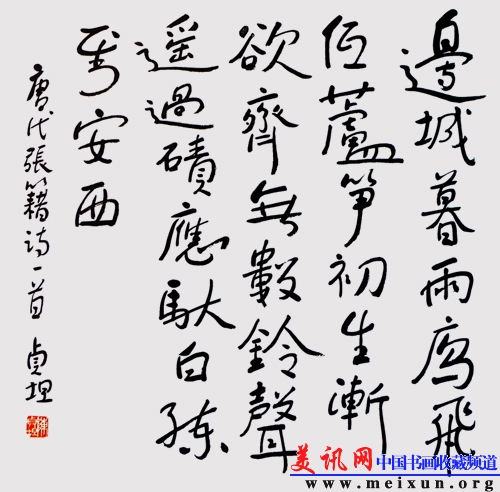 邊城暮雨雁飛
低蘆笋初生漸
欲齊無數鈴聲
遥過磧應馱白練
到安西
唐代張籍诗一首 貞
美讯网 中国书画收藏频道
www.meixun.org